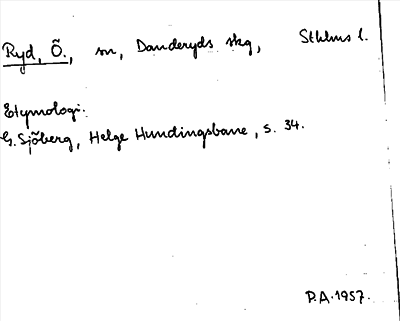 Ryd, Ö., sn, Danderyds skg, Sthlms l.
Etymologi:
G. Sjöberg, Helge Hundingsbane, s. 34.
P.A. 1957.